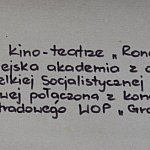 kino-teatrze „Ron
ejska akademia z o
elkiej Socjalistycznej
wej połączona z kon
tradowego WOP „Gra